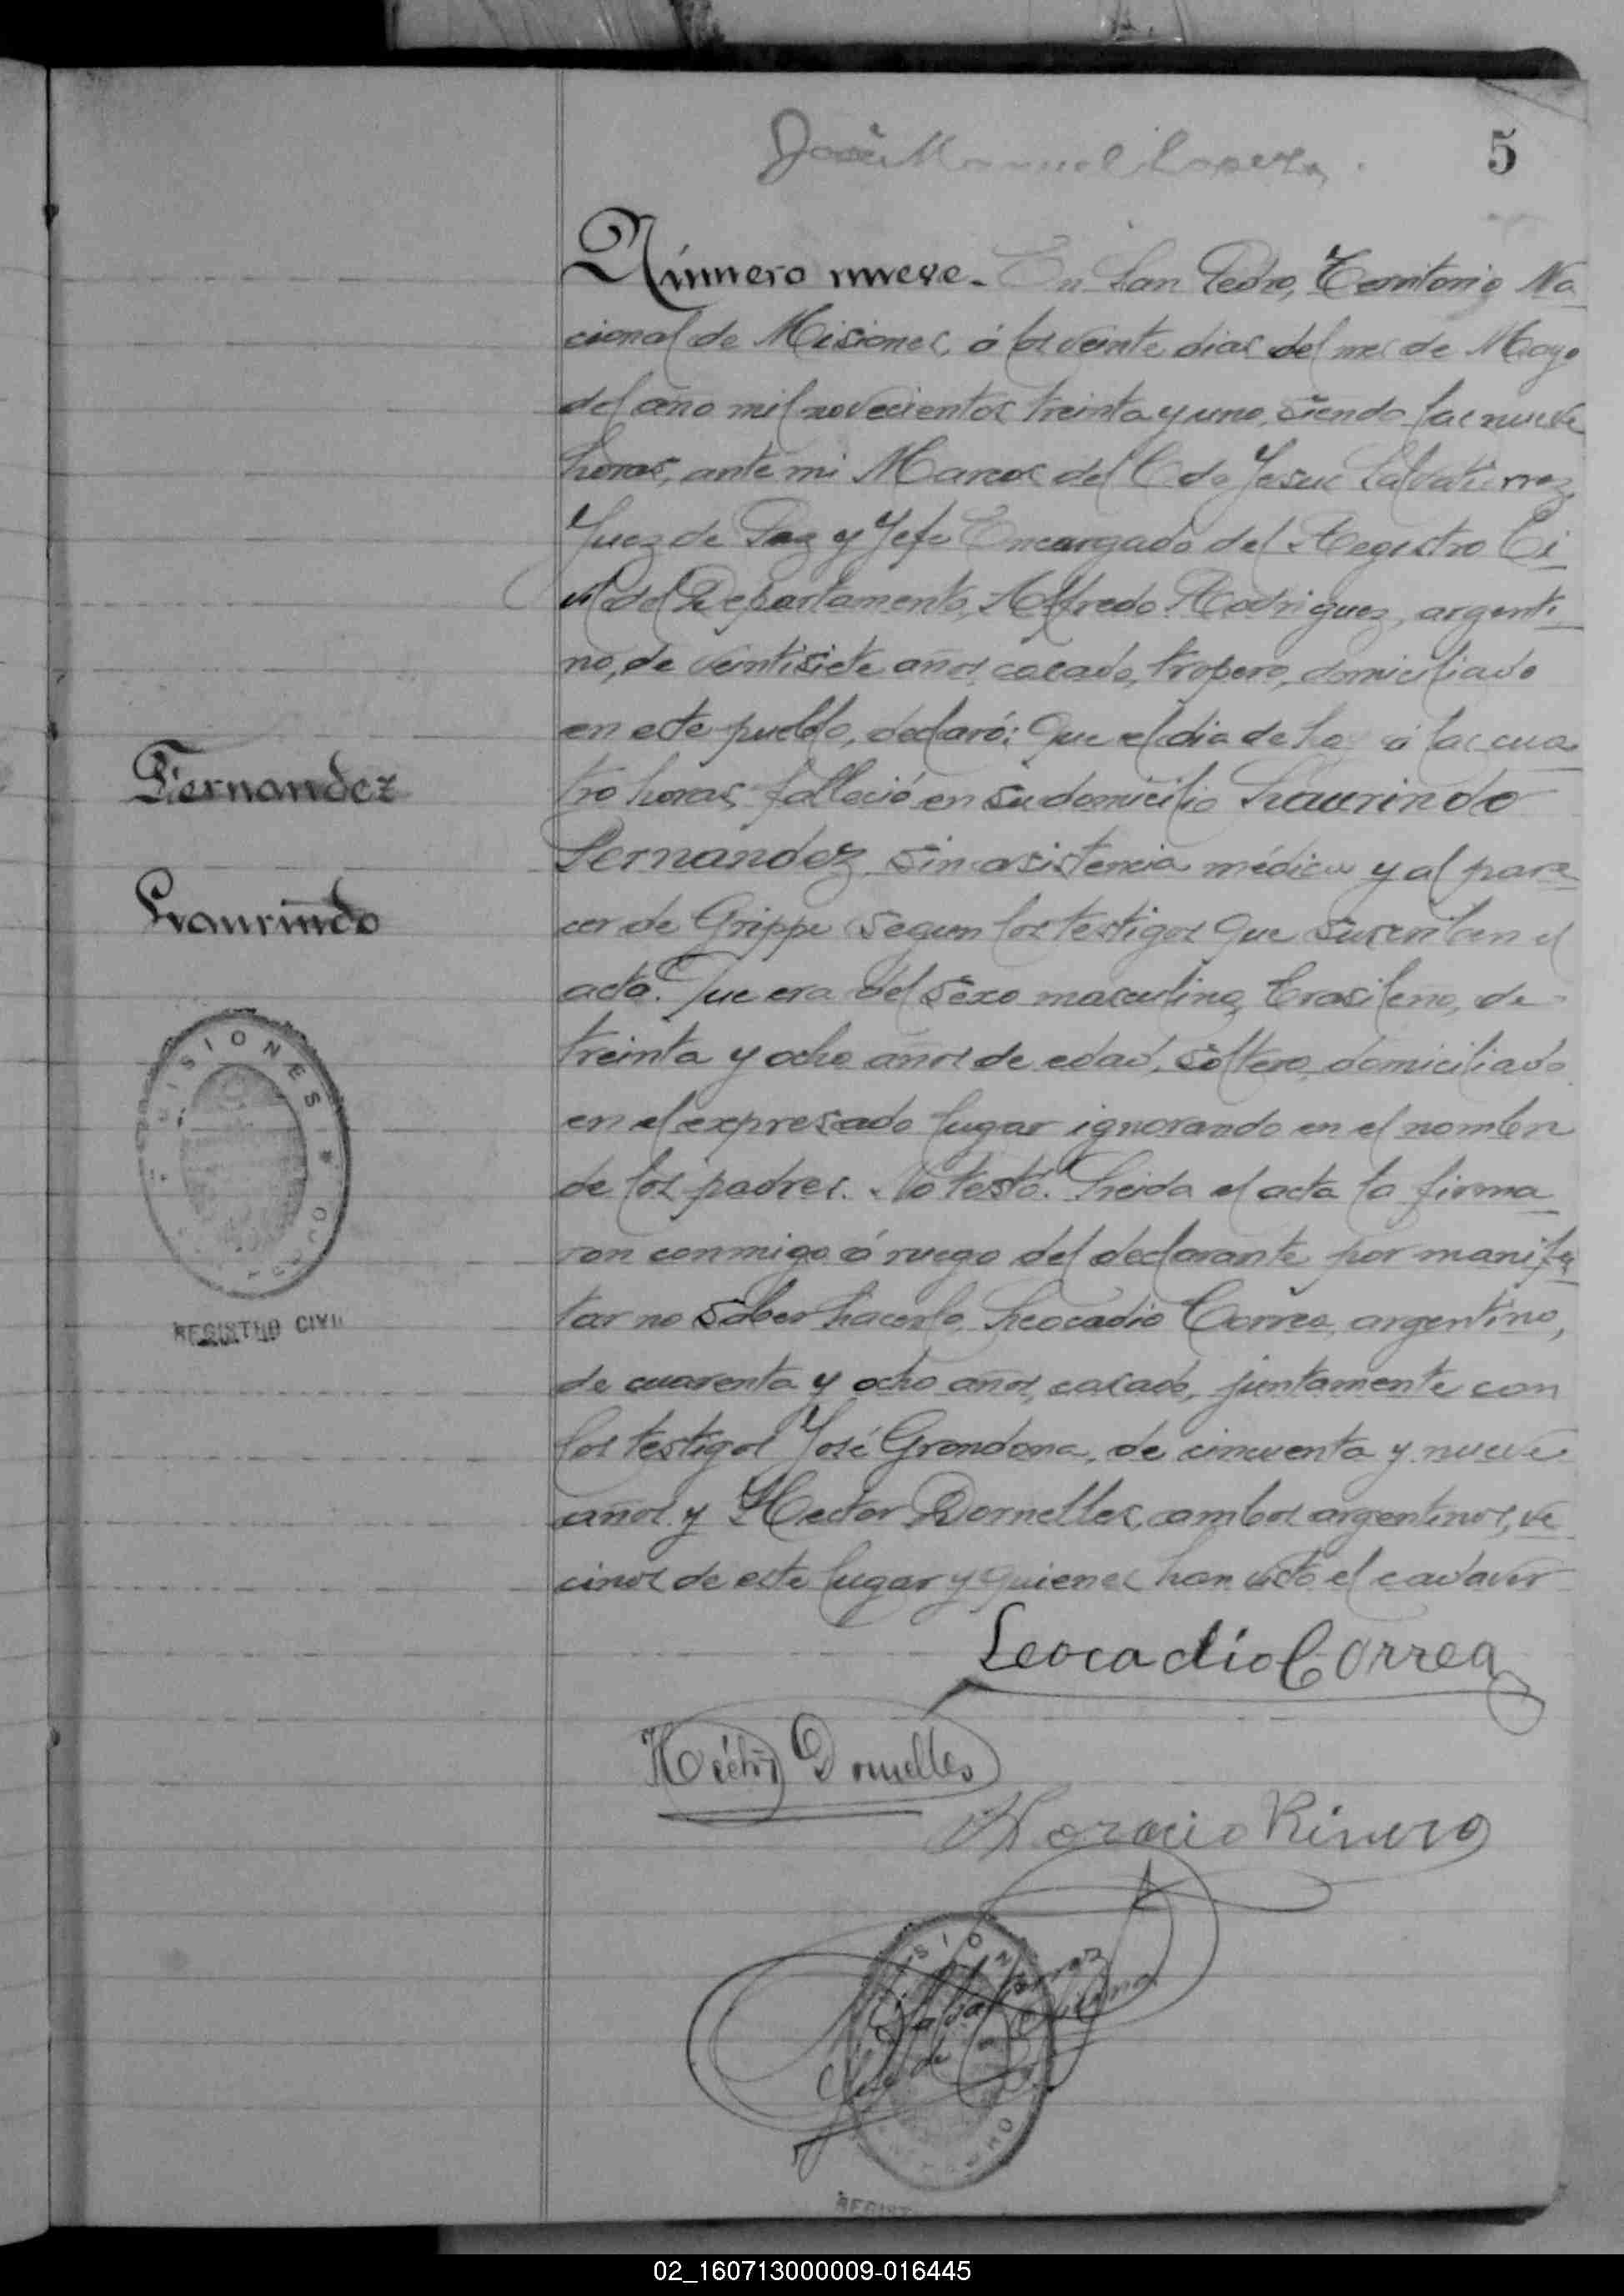 José Manuel
5
Número nueve.- En San Pedro, Territorio Na
cional de Misiones, á los veinte dias del mes de Mayo
del año mil novecientos treinta y uno, siendo las nueve
horas, ante mi Marcos del C de Jesus Salvatierrez,
Juez de Paz y Jefe Encargado del Registro Ci
vil del Departamento, Alfredo Rodriguez, argenti
no, de veintisiete años, casado, tropero, domiciliado
en este pueblo, declaró: Que el dia de hoy á las cua
tro horas, falleció en su domicilio Laurindo
Fernandez
Fernandez sin asistencia médica y al pare
Laurindo
cer de Grippe segun los testigos que suscriben el
acta. Que era del sexo masculino, brasileño, de
treinta y ocho años de edad, soltero, domiciliado
en el expresado lugar ignorando en el nombre
de los padres. No testó. Leida el acta la firma
ron conmigo á ruego del declarante por manifes
tar no saber hacerlo, Leocadio Correa, argentino,
de cuarenta y ocho años, casado, juntamente con
los testigos José Grondona, de cincuenta y nueve
años y Hector Dornelles, ambos argentinos, ve
cinos de este lugar y quienes han visto el cadaver
MISIONES
REGISTRO CIVIL
Leocadio Correa
Héctor Dornelles
Horacio Rivero
02_160713000009-016445